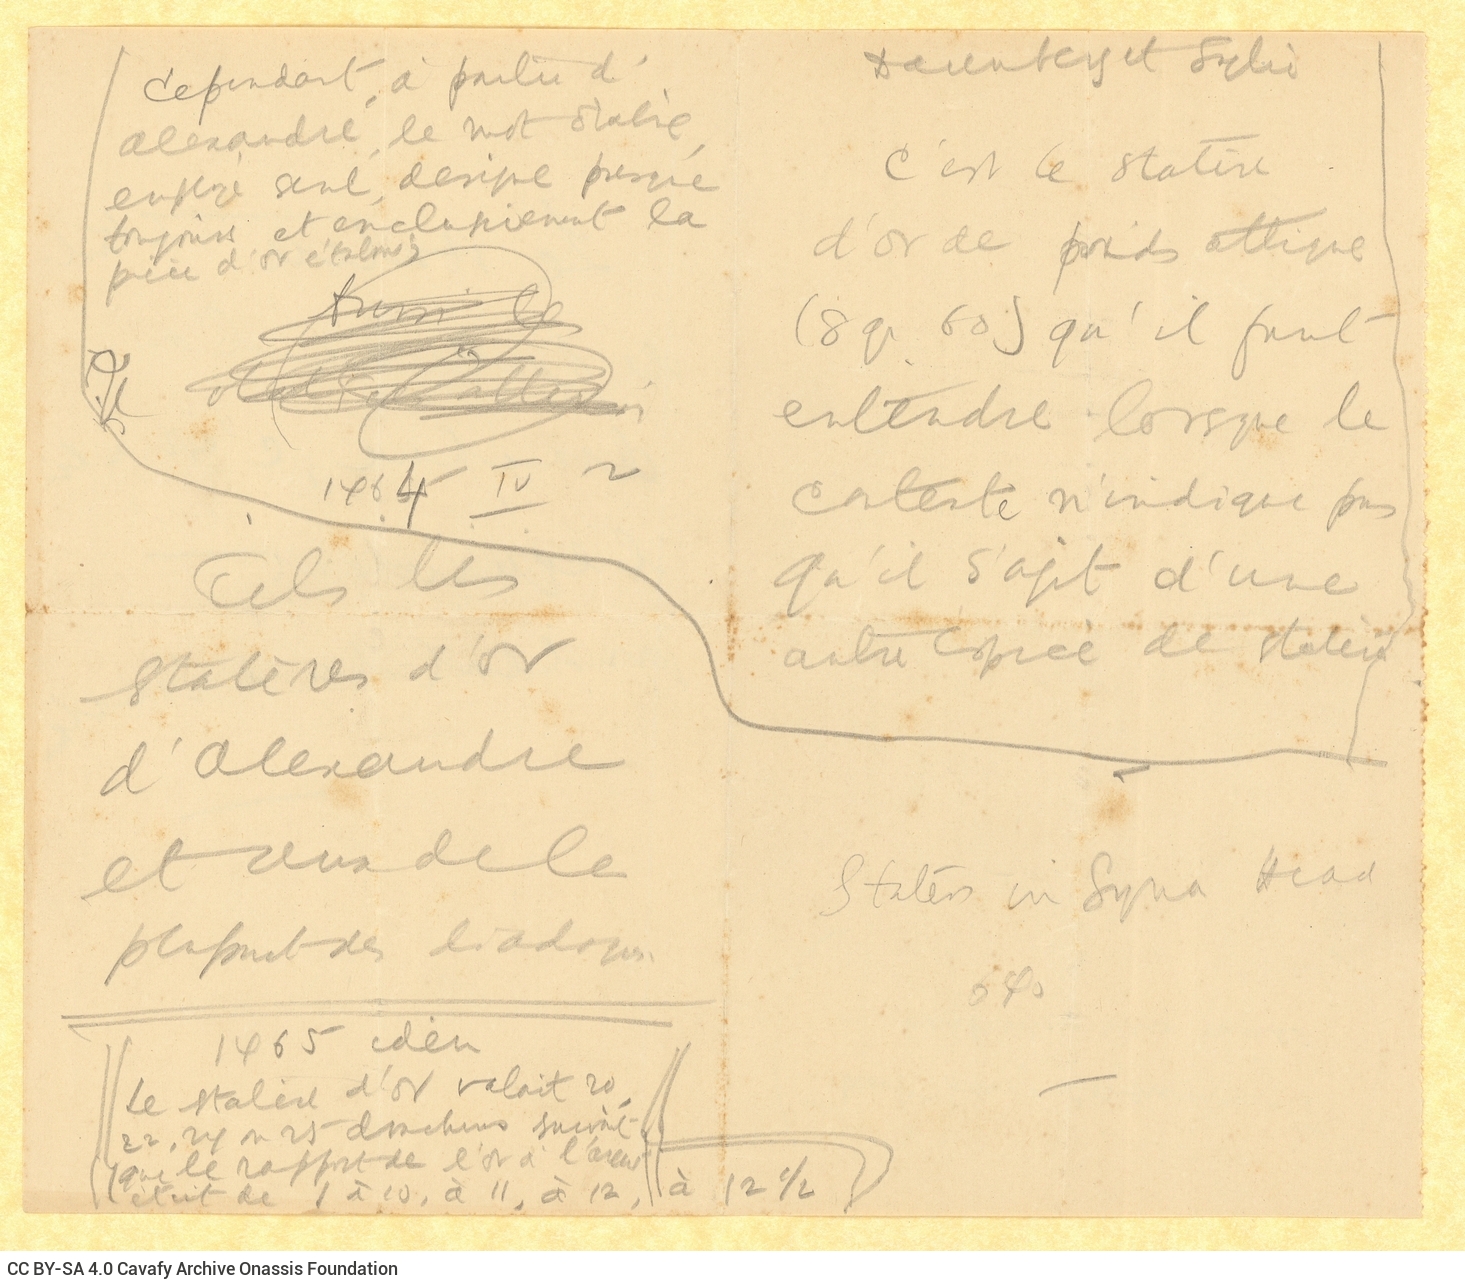 Cependant, à partir d'
Alexandre, le mot statère,
employé seul, désigne presque
toujours et exclusivement la
pièce d'or étalon;
Aussi le
1464 IV 2
Tels les
statères d'or
d'Alexandre
et ceux de la
plupart des diadoques.
1465 idem
Le statère d'or valait 20,
22, 24 ou 25 drachmes suivant
que le rapport de l'or à l'argent
était de 1 à 10, à 11, à 12, à 12 1/2
Daremberg et Saglio
C'est le statère
d'or de poids attique
(8 gr. 60) qu'il faut
entendre lorsque le
contexte n'indique pas
qu'il s'agit d'une
autre espèce de statère
Staters in Syria Head
640
CC BY-SA 4.0 Cavafy Archive Onassis Foundation